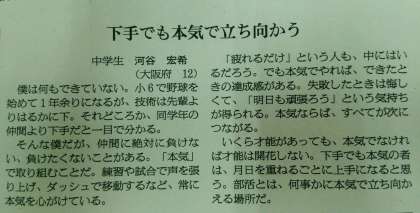 下手でも本気で立ち向かう
中学生　河谷　宏希
（大阪府　12）
僕は何もできていない。小６で野球を
始めて１年余りになるが、技術は先輩よ
りはるかに下。それどころか、同学年の
仲間より下手だと一目で分かる。
そんな僕だが、仲間に絶対に負けな
い、負けたくないことがある。「本気」
で取り組むことだ。練習や試合で声を張
り上げ、ダッシュで移動するなど、常に
本気を心がけている。
「疲れるだけ」という人も、中にはい
るだろう。でも本気でやれば、できたと
きの達成感がある。失敗したときは悔し
くて、「明日も頑張ろう」という気持ち
が得られる。本気ならば、すべてが次に
つながる。
いくら才能があっても、本気でなけれ
ば才能は開花しない。下手でも本気の者
は、月日を重ねるごとに上手になると思
う。部活とは、何事かに本気で立ち向か
える場所だ。